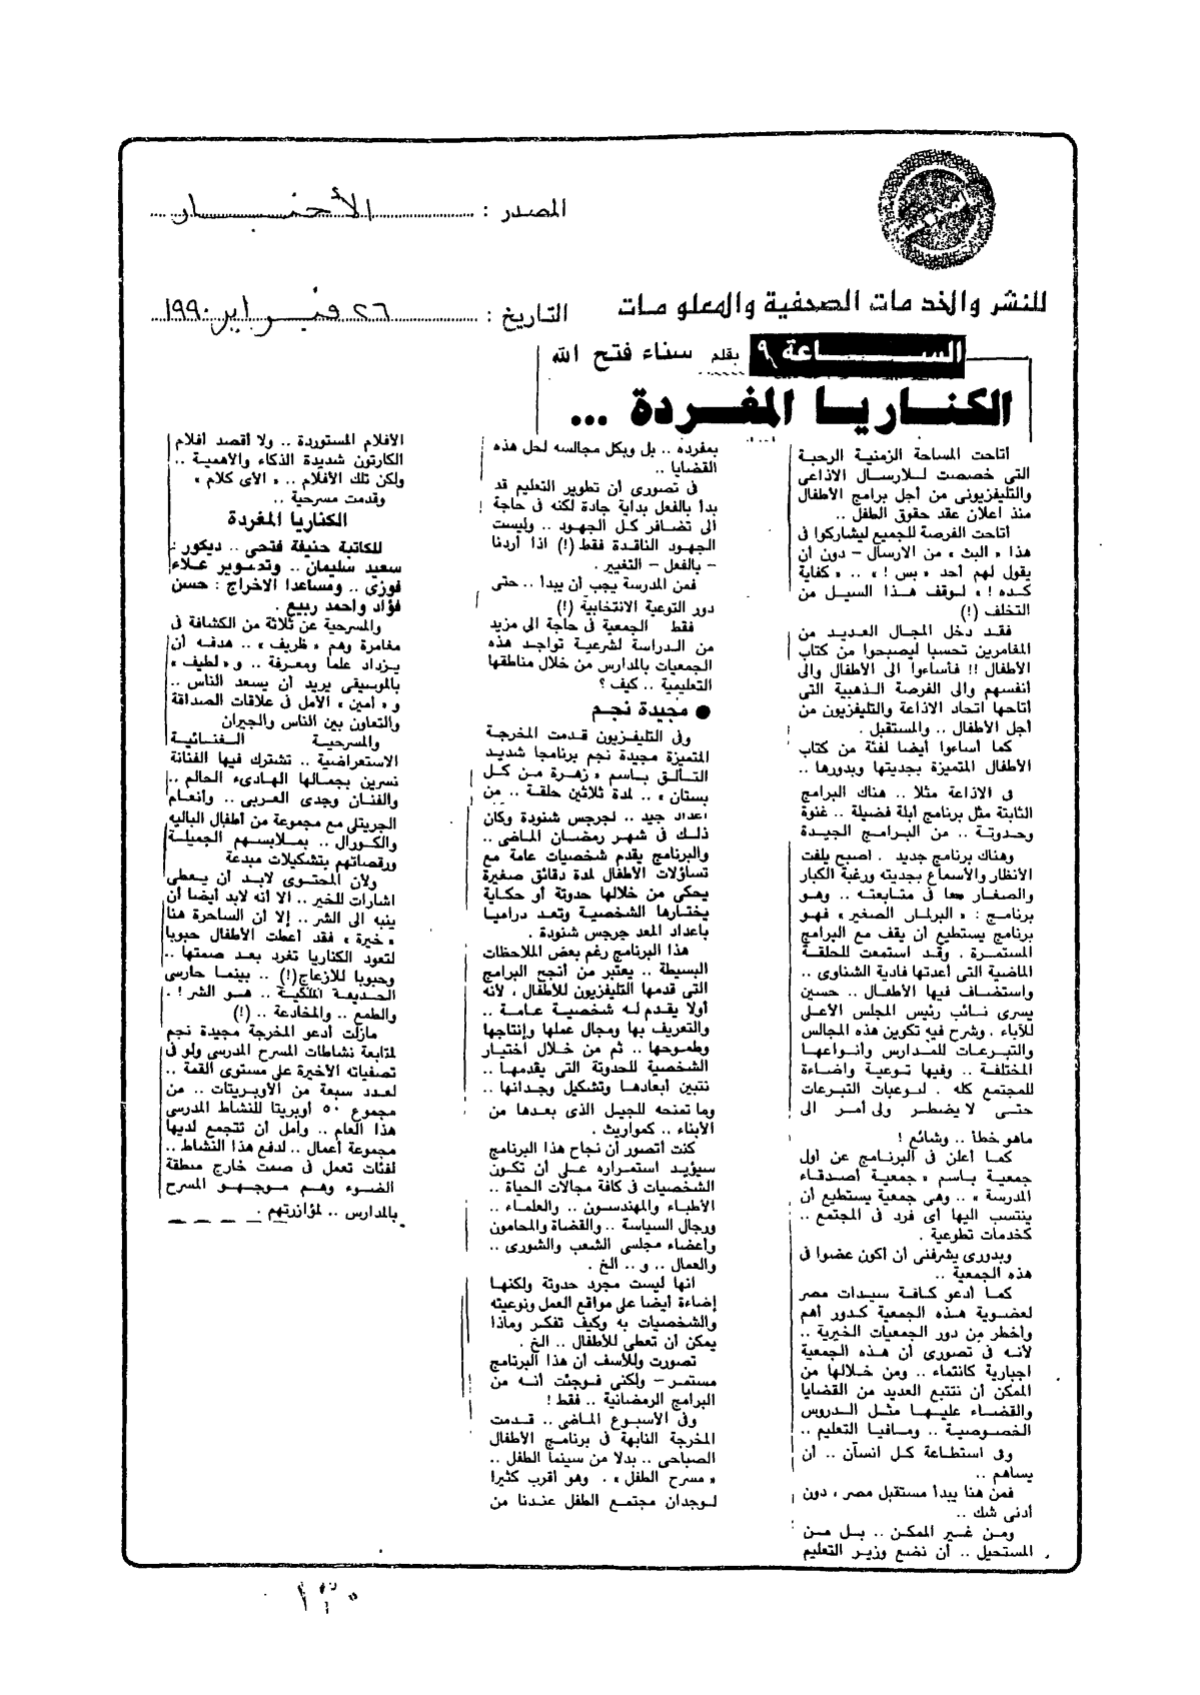 المصدر : الأخبار
للنشر والخدمات الصحفية والمعلومات
التاريخ : ٢٦ فبراير ١٩٩٠
الساعة ٩ بقلم سناء فتح الله
الكناريا المغردة ...
أتاحت المساحة الزمنية الرحبة
التى خصصت للارسال الاذاعى
والتليفزيونى من أجل برامج الأطفال
منذ اعلان عقد حقوق الطفل ..
أتاحت الفرصة للجميع ليشاركوا فى
هذا « البث » من الارسال - دون أن
يقول لهم أحد « بس ! » .. « كفاية
كده ! » لوقف هذا السيل من
التخلف (!)
فقد دخل المجال العديد من
المغامرين تحسبا ليصبحوا من كتاب
الأطفال !! فأساءوا الى الأطفال والى
أنفسهم والى الفرصة الذهبية التى
أتاحها اتحاد الاذاعة والتليفزيون من
أجل الأطفال .. والمستقبل .
كما أساءوا أيضا لفئة من كتاب
الأطفال المتميزة بجديتها وبدورها ..
فى الاذاعة مثلا .. هناك البرامج
الثابتة مثل برنامج أبلة فضيلة .. غنوة
وحدوتة .. من البرامج الجيدة
وهناك برنامج جديد . اصبح يلفت
الأنظار والأسماع بجديته ورغبة الكبار
والصغار معا فى متابعته .. وهو
برنامج : « البرلمان الصغير » فهو
برنامج يستطيع أن يقف مع البرامج
المستمرة . وقد استمعت للحلقة
الماضية التى أعدتها فادية الشناوى ..
واستضاف فيها الأطفال .. حسين
يسرى نائب رئيس المجلس الأعلى
للآباء . وشرح فيه تكوين هذه المجالس
والتبرعات للمدارس وأنواعها
المختلفة .. وفيها توعية واضاءة
للمجتمع كله . لنوعيات التبرعات
حتى لا يضطر ولى أمر الى
ماهو خطأ .. وشائع !
كما أعلن فى البرنامج عن اول
جمعية باسم « جمعية أصدقاء
المدرسة » .. وهى جمعية يستطيع أن
ينتسب اليها أى فرد فى المجتمع ..
كخدمات تطوعية .
وبدورى يشرفنى أن أكون عضوا فى
هذه الجمعية ..
كما أدعو كافة سيدات مصر
لعضوية هذه الجمعية كدور أهم
وأخطر من دور الجمعيات الخيرية ..
لأنه فى تصورى أن هذه الجمعية
اجبارية كانتماء .. ومن خلالها من
الممكن أن نتتبع العديد من القضايا
والقضاء عليها مثل الدروس
الخصوصية .. ومافيا التعليم ..
وفى استطاعة كل انسان .. أن
يساهم ..
فمن هنا يبدأ مستقبل مصر ، دون
أدنى شك ..
ومن غير الممكن .. بل من
المستحيل .. أن نضع وزير التعليم
بمفرده .. بل وبكل مجالسه لحل هذه
القضايا ..
فى تصورى أن تطوير التعليم قد
بدأ بالفعل بداية جادة لكنه فى حاجة
الى تضافر كل الجهود .. وليست
الجهود الناقدة فقط (!) اذا أردنا
- بالفعل - التغيير .
فمن المدرسة يجب أن يبدأ .. حتى
دور التوعية الانتخابية (!)
فقط الجمعية فى حاجة الى مزيد
من الدراسة لشرعية تواجد هذه
الجمعيات بالمدارس من خلال مناطقها
التعليمية .. كيف ؟
● مجيدة نجم
وفى التليفزيون قدمت المخرجة
المتميزة مجيدة نجم برنامجا شديد
التألق باسم « زهرة من كل
بستان » .. لمدة ثلاثين حلقة .. من
اعداد جيد .. لجرجس شنودة وكان
ذلك فى شهر رمضان الماضى ..
والبرنامج يقدم شخصيات عامة مع
تساؤلات الأطفال لمدة دقائق صغيرة
يحكى من خلالها حدوتة أو حكاية
يختارها الشخصية وتعد دراميا
باعداد المعد جرجس شنودة .
هذا البرنامج رغم بعض الملاحظات
البسيطة .. يعتبر من أنجح البرامج
التى قدمها التليفزيون للأطفال ، لأنه
أولا يقدم له شخصية عامة ..
والتعريف بها ومجال عملها وإنتاجها
وطموحها .. ثم من خلال أختيار
الشخصية للحدوتة التى يقدمها ..
نتبين أبعادها وتشكيل وجدانها ..
وما تمنحه للجيل الذى بعدها من
الأبناء .. كمواريث .
كنت أتصور أن نجاح هذا البرنامج
سيؤيد استمراره على أن تكون
الشخصيات فى كافة مجالات الحياة ..
الأطباء والمهندسون .. والعلماء ..
ورجال السياسة .. والقضاة والمحامون
وأعضاء مجلسى الشعب والشورى ..
والعمال .. و .. الخ .
انها ليست مجرد حدوتة ولكنها
إضاءة أيضا على مواقع العمل ونوعيته
والشخصيات به وكيف تفكر وماذا
يمكن أن تعطى للأطفال .. الخ .
تصورت وللأسف أن هذا البرنامج
مستمر - ولكنى فوجئت أنه من
البرامج الرمضانية .. فقط !
وفى الأسبوع الماضى .. قدمت
المخرجة النابهة فى برنامج الأطفال
الصباحى .. بدلا من سينما الطفل ..
« مسرح الطفل » . وهو أقرب كثيرا
لوجدان مجتمع الطفل عندنا من
الأفلام المستوردة .. ولا أقصد أفلام
الكارتون شديدة الذكاء والأهمية ..
ولكن تلك الأفلام .. « الأى كلام »
وقدمت مسرحية ..
الكناريا المغردة
للكاتبة حنيفة فتحى .. ديكور :
سعيد سليمان .. وتصوير علاء
فوزى .. ومساعدا الاخراج : حسن
فؤاد واحمد ربيع .
والمسرحية عن ثلاثة من الكشافة فى
مغامرة وهم « ظريف » .. هدفه أن
يزداد علما ومعرفة .. و « لطيف »
بالموسيقى يريد أن يسعد الناس ..
و « أمين » الأمل فى علاقات الصداقة
والتعاون بين الناس والجيران
والمسرحية الغنائية
الاستعراضية .. تشترك فيها الفنانة
نسرين بجمالها الهادىء الحالم ..
والفنان وجدى العربى .. وأنعام
الجريتلى مع مجموعة من أطفال الباليه
والكورال .. بملابسهم الجميلة
ورقصاتهم بتشكيلات مبدعة
ولأن المحتوى لابد أن يعطى
اشارات للخير .. الا أنه لابد أيضا أن
ينبه الى الشر .. إلا أن الساحرة هنا
« خيرة » فقد أعطت الأطفال حبوبا
لتعود الكناريا تغرد بعد صمتها ..
وحبوبا للازعاج(!) .. بينما حارسى
الحديقة الملكية .. هو الشر ! .
والطمع .. والمخادعة .. (!)
مازلت أدعو المخرجة مجيدة نجم
لمتابعة نشاطات المسرح المدرسى ولو فى
تصفياته الأخيرة على مستوى القمة ..
لعدد سبعة من الأوبريتات .. من
مجموع ٥٠ أوبريتا للنشاط المدرسى
هذا العام .. وأمل أن تتجمع لديها
مجموعة أعمال .. لدفع هذا النشاط ..
لفئات تعمل فى صمت خارج منطقة
الضوء وهم موجهو المسرح
بالمدارس .. لمؤازرتهم .